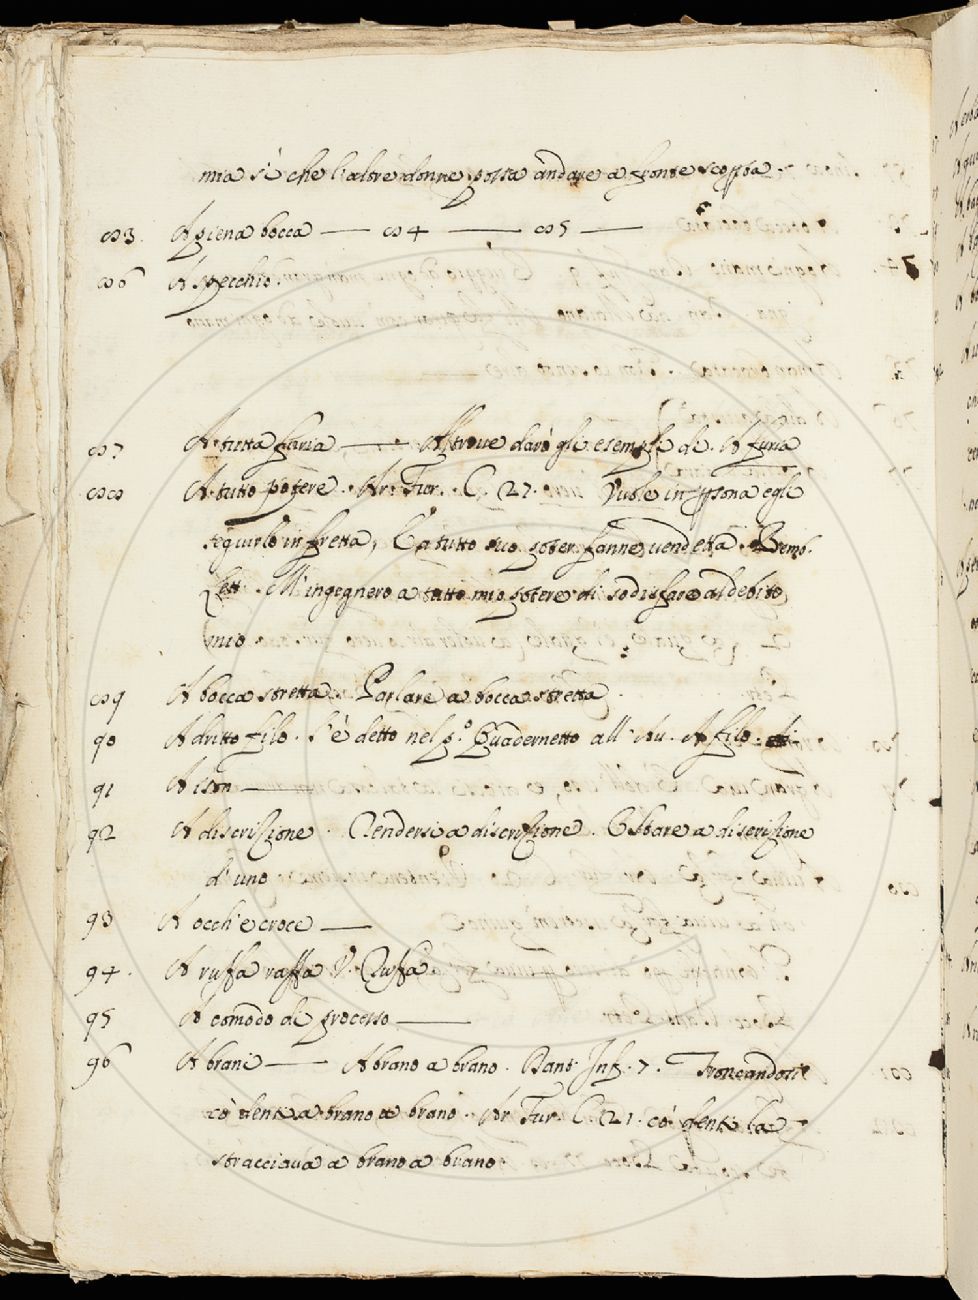 mia sì che l'altre donne possa andare a fronte scopta.
83. A piena bocca — 84 — 85 —
86 A specchio.
87 A tutta furia — Altrove darò gli esempli di A furia
88 A tutto potere. Ar. Fur. C. 27. Vuole in psona egli
seguirlo in fretta, E a tutto suo poter farne vendetta. Bemb.
Lett. M'ingegnerò a tutto mio potere di sodisfare al debito
mio
89 A bocca stretta. Parlare a bocca stretta.
90 A dritto filo. S'è detto nel p.o Quadernetto all'Au. A filo.
91 A ison —
92 A discrizione. Rendersi a discrizione. E Stare a discrizione
d'uno
93 A occh' e croce —
94. A ruffa raffa V. Ruffa.
95 A comodo di processo —
96 A brani — A brano a brano. Dant. Inf. 7. Troncandosi
co' denti a brano a brano. Ar. Fur. C. 21. co' denti la
stracciava a brano a brano